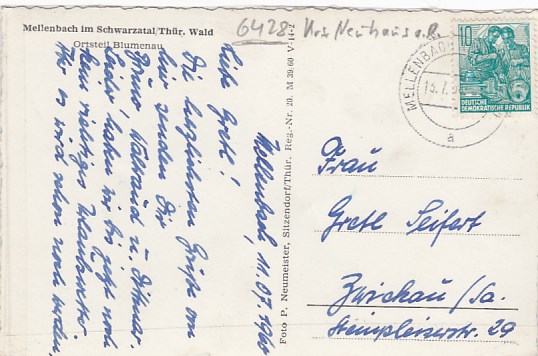 Mellenbach im Schwarzatal/Thür. Wald
Ortsteil Blumenau
6428 Krs Neuhaus a.R.
Mellenbach, 11.07.1960
Liebe Gretl!
Die herzlichsten Grüße von
hier senden Dir
Bruno, Waltraud u. Dittmar.
Leider haben wir bis jetzt noch
kein richtiges Urlaubswetter.
Na es wird schon noch werden.
Foto P. Neumeister, Sitzendorf/Thür. Reg.-Nr. 20. M 39/60 V 14-2
MELLENBACH
a
10
DEUTSCHE
DEMOKRATISCHE REPUBLIK
Frau
Gretl Seifert
Zwickau/Sa.
29